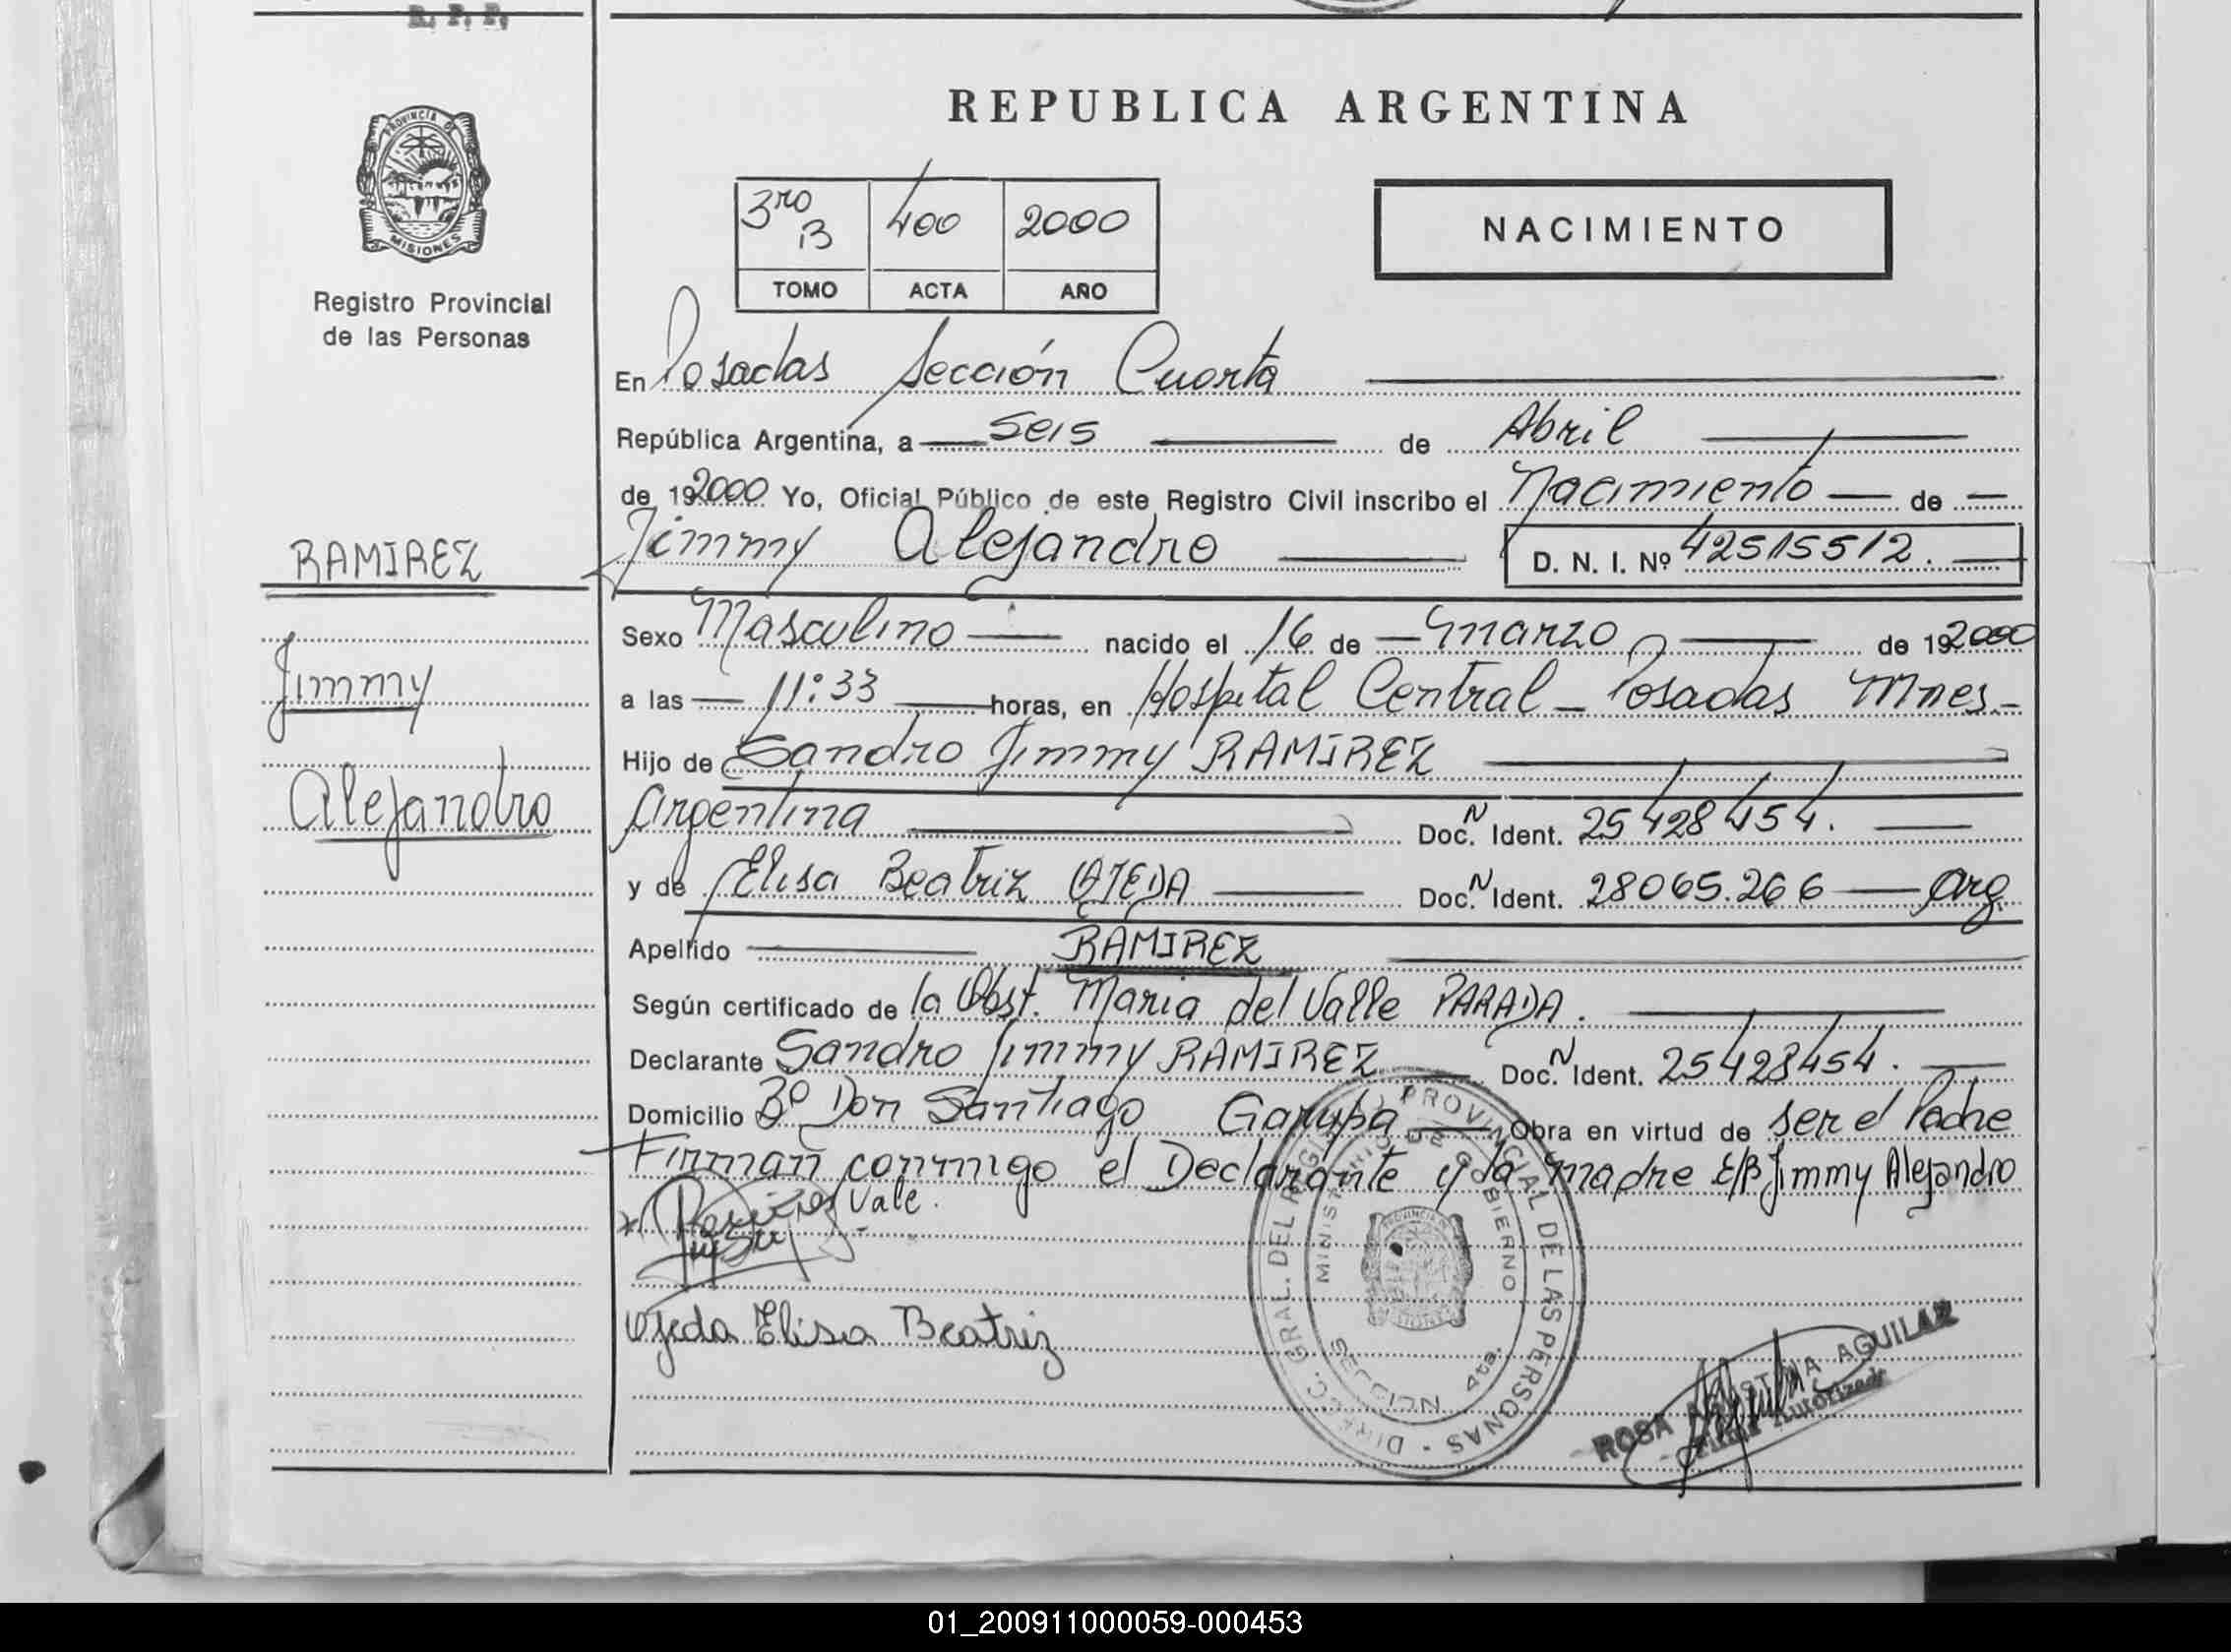 R. P. P.
REPUBLICA ARGENTINA
PROVINCIA DE
MISIONES
Registro Provincial
de las Personas
3ro B 400 2000
TOMO ACTA AÑO
NACIMIENTO
En Posadas Sección Cuarta
República Argentina, a seis de Abril
de 192000 Yo, Oficial Público de este Registro Civil inscribo el Nacimiento de
RAMIREZ
Jimmy
Alejandro
Jimmy Alejandro D. N. I. Nº 42515512.
Sexo Masculino nacido el 16 de marzo de 192000
a las 11:33 horas, en Hospital Central - Posadas Mnes.-
Hijo de Sandro Jimmy RAMIREZ
Argentina Doc. N Ident. 25428454.
y de Elisa Beatriz OJEDA Doc. N Ident. 28065.266 Arg.
Apellido RAMIREZ
Según certificado de la Obst. Maria del Valle PARADA.
Declarante Sandro Jimmy RAMIREZ Doc. N Ident. 25428454.
Domicilio Bº Don Santiago Garupa Obra en virtud de ser el Padre
Firman conmigo el Declarante y la madre E/B Jimmy Alejandro
Vale.
Ojeda Elisa Beatriz
DIRECC. GRAL. DEL REGISTRO PROVINCIAL DE LAS PERSONAS
MINISTERIO DE GOBIERNO
SECCION 4ta.
ROSA AGUSTINA AGUILAR
Firma Autorizada
01_200911000059-000453